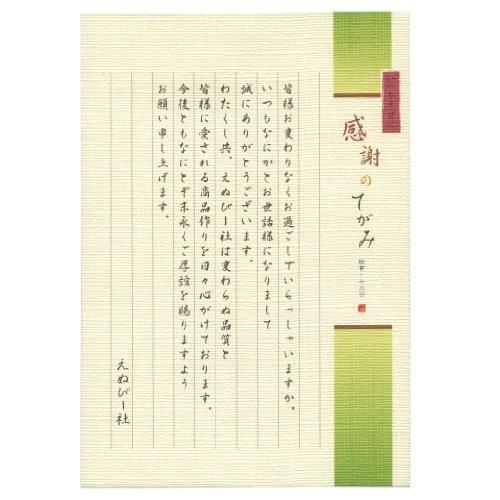 感謝の
てがみ
縦書・十三行
皆様お変わりなくお過ごしでいらっしゃいますか。
いつもなにかとお世話様になりまして
誠にありがとうございます。
わたくし共、えぬびー社は変わらぬ品質と
皆様に愛される商品作りを日々心がけております。
今後ともなにとぞ末永くご厚誼を賜りますよう
お願い申し上げます。
えぬびー社